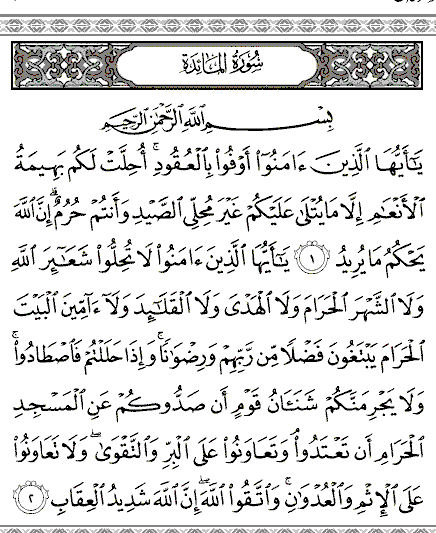 سُورَةُ المَائدَة
بِسْمِ اللَّهِ الرَّحْمَٰنِ الرَّحِيمِ
يَٰٓأَيُّهَا الَّذِينَ ءَامَنُوٓا۟ أَوْفُوا۟ بِالْعُقُودِ ۚ أُحِلَّتْ لَكُم بَهِيمَةُ
الْأَنْعَٰمِ إِلَّا مَا يُتْلَىٰ عَلَيْكُمْ غَيْرَ مُحِلِّى الصَّيْدِ وَأَنتُمْ حُرُمٌ ۗ إِنَّ اللَّهَ
يَحْكُمُ مَا يُرِيدُ ١ يَٰٓأَيُّهَا الَّذِينَ ءَامَنُوا۟ لَا تُحِلُّوا۟ شَعَٰٓئِرَ اللَّهِ
وَلَا الشَّهْرَ الْحَرَامَ وَلَا الْهَدْىَ وَلَا الْقَلَٰٓئِدَ وَلَآ ءَآمِّينَ الْبَيْتَ
الْحَرَامَ يَبْتَغُونَ فَضْلًا مِّن رَّبِّهِمْ وَرِضْوَٰنًا ۚ وَإِذَا حَلَلْتُمْ فَاصْطَادُوا۟ ۚ
وَلَا يَجْرِمَنَّكُمْ شَنَـَٔانُ قَوْمٍ أَن صَدُّوكُمْ عَنِ الْمَسْجِدِ
الْحَرَامِ أَن تَعْتَدُوا۟ ۘ وَتَعَاوَنُوا۟ عَلَى الْبِرِّ وَالتَّقْوَىٰ ۖ وَلَا تَعَاوَنُوا۟
عَلَى الْإِثْمِ وَالْعُدْوَٰنِ ۚ وَاتَّقُوا۟ اللَّهَ ۖ إِنَّ اللَّهَ شَدِيدُ الْعِقَابِ ٢